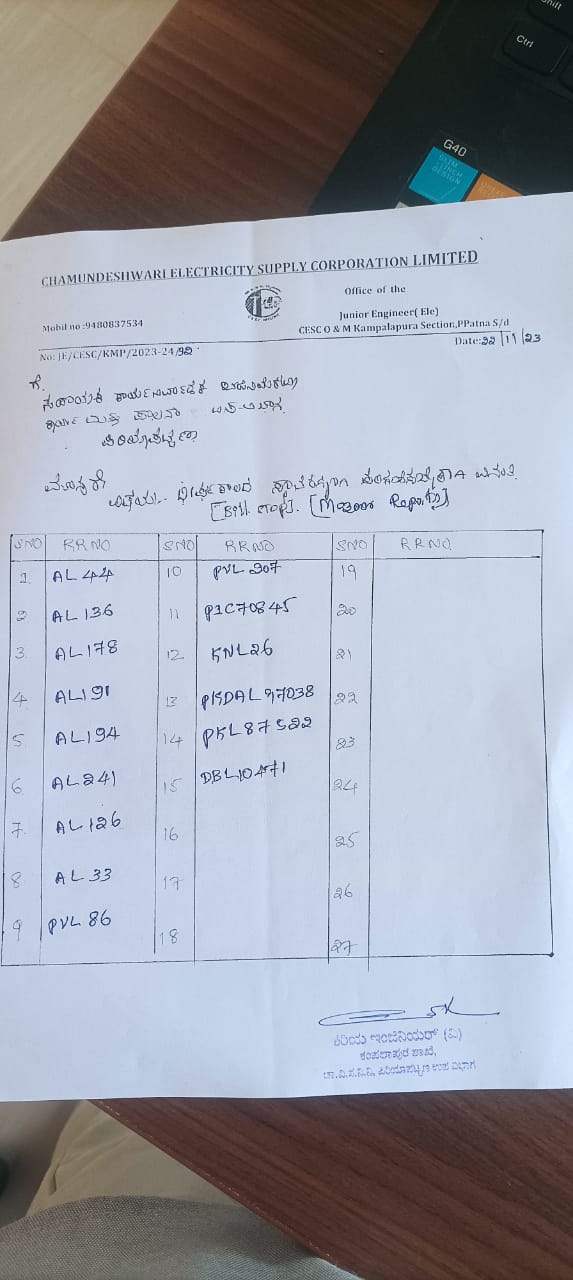 Ctrl
G40
CHAMUNDESHWARI ELECTRICITY SUPPLY CORPORATION LIMITED
Office of the
Mobil no :9480837534
Junior Engineer( Ele)
CESC O & M Kampalapura Section,PPatna S/d
No: JE/CESC/KMP/2023-24/92
Date:22/11/23
ಗೆ,
ಸಹಾಯಕ ಕಾರ್ಯನಿರ್ವಾಹಕ ಇಂಜಿನಿಯರ್
ಕಾರ್ಯ ಮತ್ತು ಪಾಲನಾ ಉಪ-ವಿಭಾಗ
ಪಿರಿಯಾಪಟ್ಟಣ
ಮಾನ್ಯರೇ
[Bill stop]. [Mazoor Reports]
SNO RRNO SNO RRNO SNO RRNO
1. AL 44 10 PVL 307 19
2 AL 136 11 P1C70845 20
3 AL178 12 KNL26 21
4 AL191 13 PKDAL97038 22
5 AL194 14 PKL87522 23
6 AL241 15 DBL10471 24
7. AL126 16 25
8 AL33 17 26
9 PVL86 18 27
ಕಿರಿಯ ಇಂಜಿನಿಯರ್ (ವಿ)
ಕಂಪಲಾಪುರ ಶಾಖೆ,
ಚಾ.ವಿ.ಸ.ನಿ.ನಿ, ಪಿರಿಯಾಪಟ್ಟಣ ಉಪ ವಿಭಾಗ